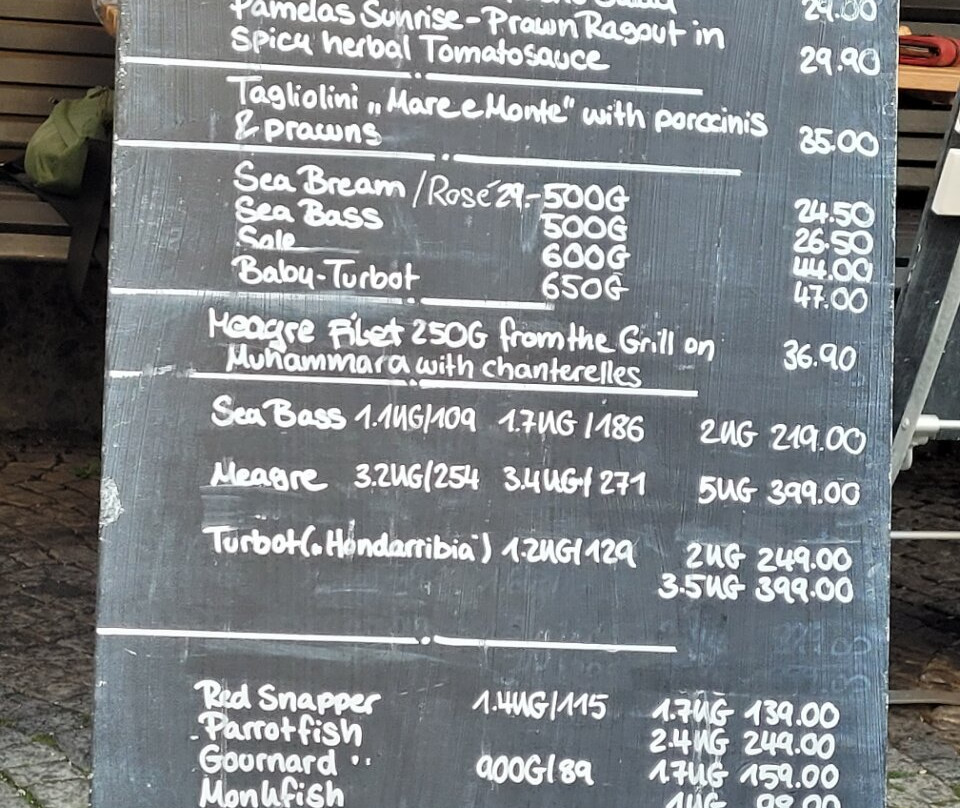 29.00
Pamelas Sunrise-Prawn Ragout in
spicy herbal Tomatosauce 29.90
Tagliolini „Mare e Monte" with porccinis
& prawns 35.00
Sea Bream /Rosé 29.- 500G 24.50
Sea Bass 500G 26.50
Sole 600G 44.00
Baby-Turbot 650G 47.00
Meagre Filet 250G from the Grill on
Muhammara with chanterelles 36.90
Sea Bass 1.1KG/109 1.7KG/186 2KG 219.00
Meagre 3.2KG/254 3.4KG/271 5KG 399.00
Turbot („Hondarribia") 1.2KG/129 2KG 249.00
3.5KG 399.00
Red Snapper 1.4KG/115 1.7KG 139.00
Parrotfish 2.4KG 249.00
Gournard " 900G/89 1.7KG 159.00
Monkfish 1KG